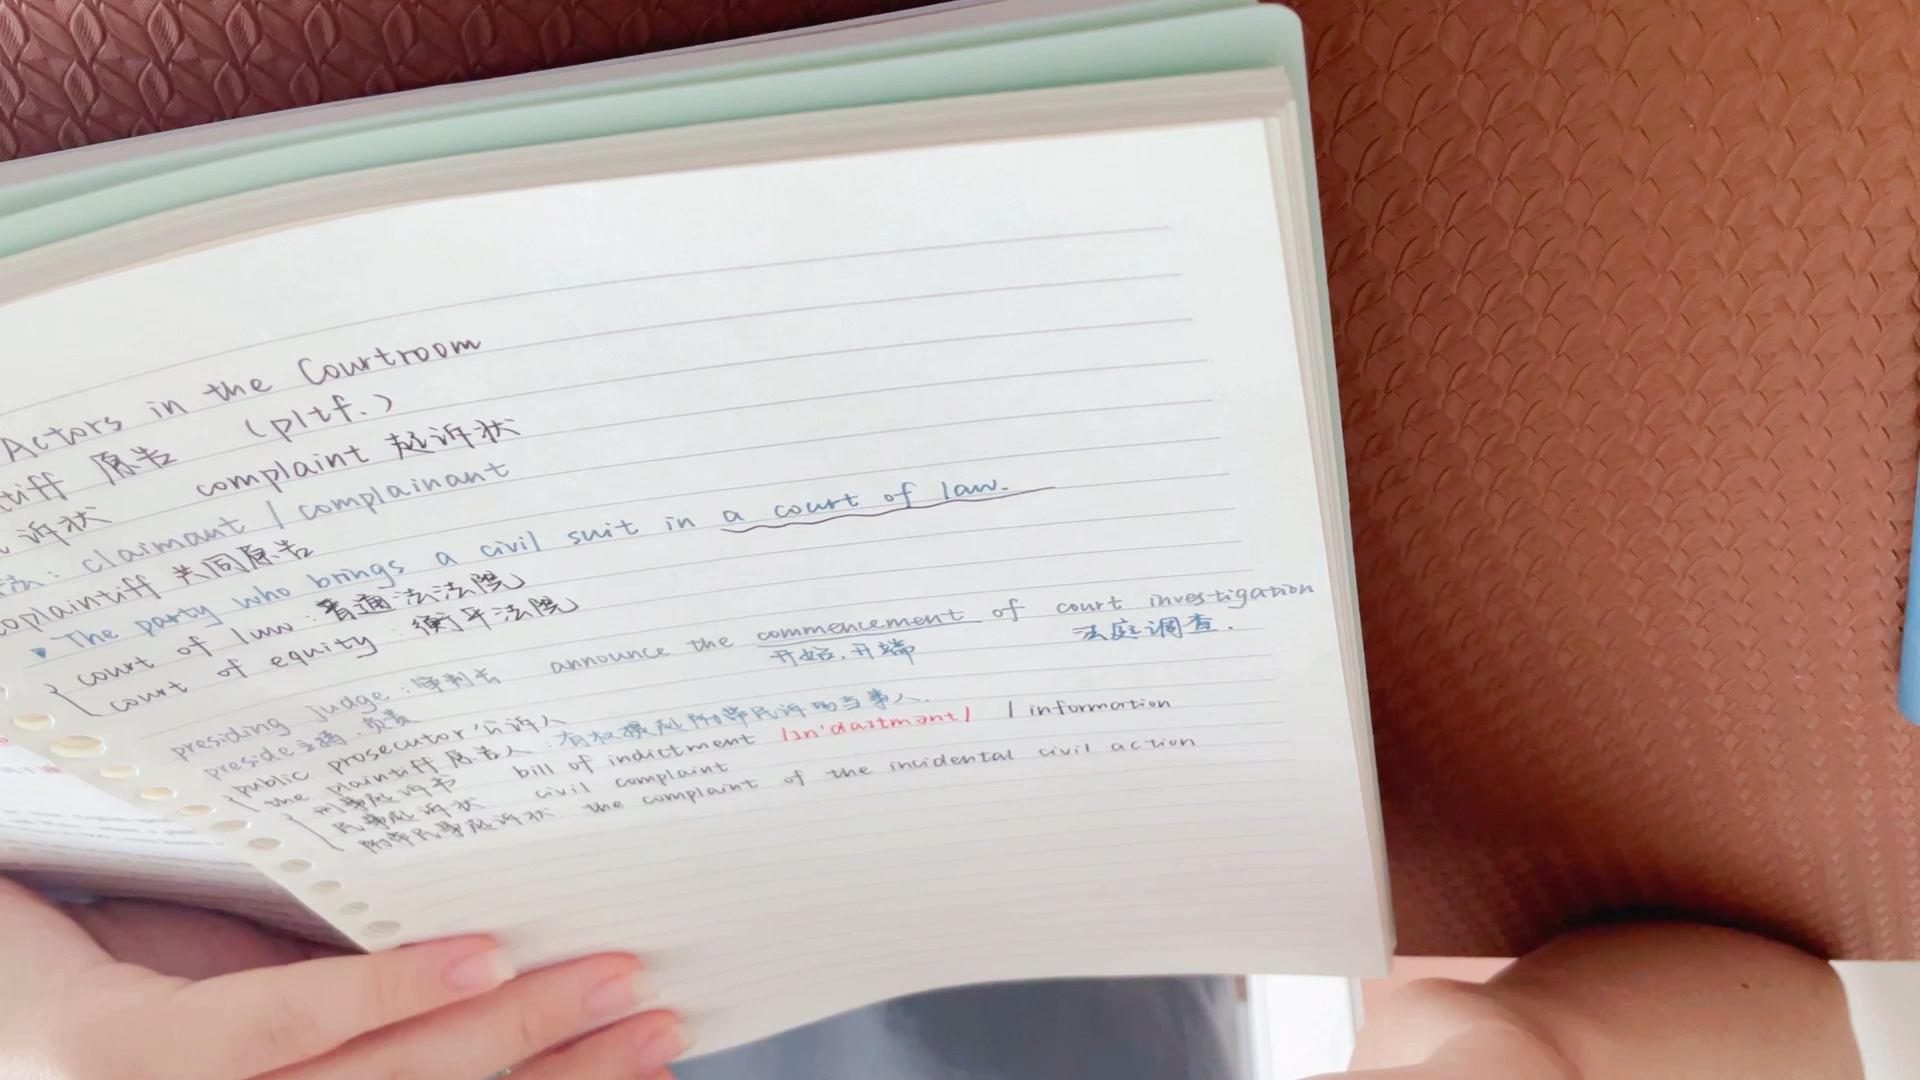 Actors in the Courtroom
tiff 原告 (pltf.)
诉状 complaint 起诉状
: claimant / complainant
coplaintiff 共同原告
The party who brings a civil suit in a court of law.
court of law: 普通法法院
court of equity: 衡平法院
presiding judge: 审判长 announce the commencement of court investigation
preside 主持.负责 开始.开端 法庭调查.
public prosecutor 公诉人
the plaintiff 原告人: 有权提起附带民诉的当事人.
刑事起诉书 bill of indictment /ɪn'daɪtmənt/ / information
民事起诉状 civil complaint
附带民事起诉状 the complaint of the incidental civil action